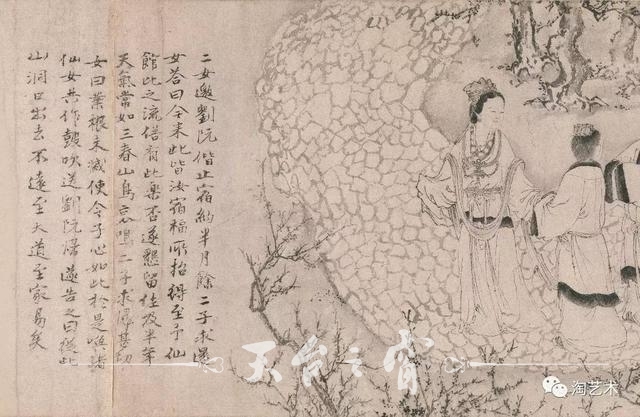 二女邀劉阮偕止宿約半月餘二子求還
女答曰今来此皆汝宿福所招得至予仙
館此之流俗有此樂否遂懇留住及半年
天氣常如三春山鳥哀鳴二子求歸甚切
女曰業根未滅使令子心如此於是喚諸
仙女共作鼓吹送劉阮歸遂告之曰從此
山洞口出去不遠至大道至家易矣
天台之
淘艺术